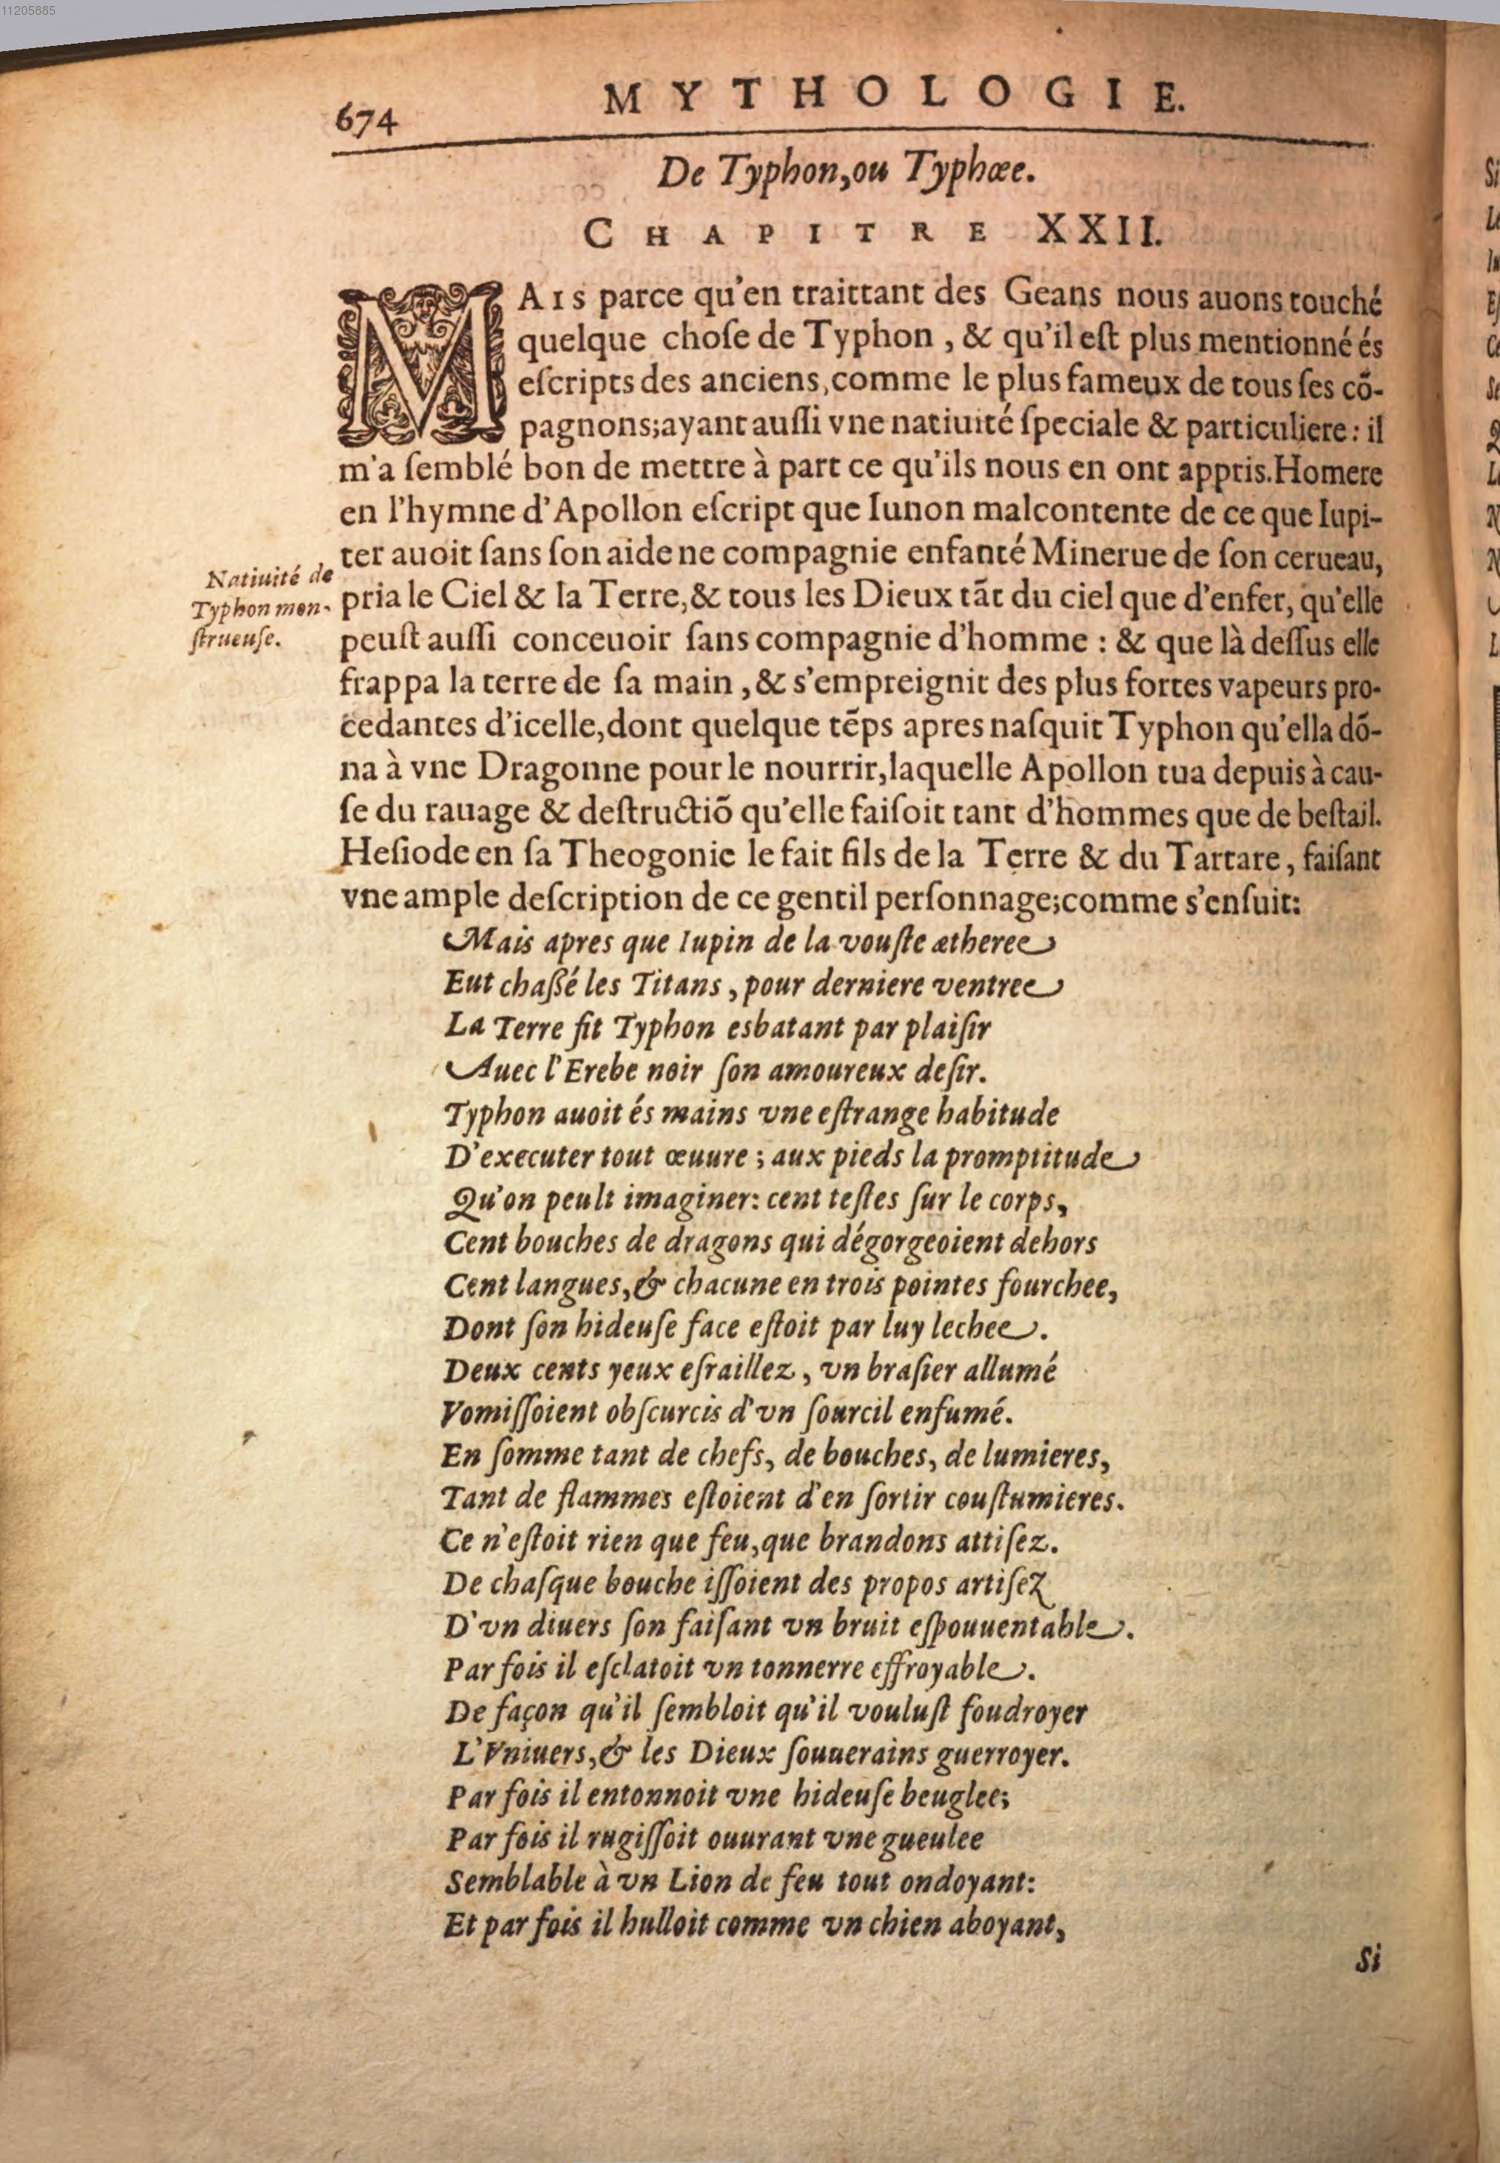 11205885
MYTHOLOGIE.
674
De Typhon, ou Typhœe.
CHAPITRE XXII.
MAIS parce qu'en traittant des Geans nous auons touché
quelque choſe de Typhon, & qu'il eſt plus mentionné és
eſcripts des anciens, comme le plus fameux de tous ſes cõ-
pagnons; ayant auſſi vne natiuité ſpeciale & particuliere: il
m'a ſemblé bon de mettre à part ce qu'ils nous en ont appris. Homere
en l'hymne d'Apollon eſcript que Iunon malcontente de ce que Iupi-
ter auoit ſans ſon aide ne compagnie enfanté Minerue de ſon cerueau,
Natiuité de
Typhon mon-
ſtrueuſe.
pria le Ciel & la Terre, & tous les Dieux tãt du ciel que d'enfer, qu'elle
peuſt auſſi conceuoir ſans compagnie d'homme: & que là deſſus elle
frappa la terre de ſa main, & s'empreignit des plus fortes vapeurs pro-
cedantes d'icelle, dont quelque tẽps apres naſquit Typhon qu'ella dõ-
na à vne Dragonne pour le nourrir, laquelle Apollon tua depuis à cau-
ſe du rauage & deſtructiõ qu'elle faiſoit tant d'hommes que de beſtail.
Heſiode en ſa Theogonie le fait fils de la Terre & du Tartare, faiſant
vne ample deſcription de ce gentil perſonnage; comme s'enſuit:
Mais apres que Iupin de la vouſte ætheree
Eut chaßé les Titans, pour derniere ventree
La Terre fit Typhon esbatant par plaiſir
Auec l'Erebe noir ſon amoureux deſir.
Typhon auoit és mains vne eſtrange habitude
D'executer tout œuure; aux pieds la promptitude
Qu'on peult imaginer: cent teſtes ſur le corps,
Cent bouches de dragons qui dégorgeoient dehors
Cent langues, & chacune en trois pointes fourchee,
Dont ſon hideuſe face eſtoit par luy lechee.
Deux cents yeux eſraillez, vn braſier allumé
Vomiſſoient obſcurcis d'vn ſourcil enfumé.
En ſomme tant de chefs, de bouches, de lumieres,
Tant de flammes eſtoient d'en ſortir couſtumieres.
Ce n'eſtoit rien que feu, que brandons attiſez.
De chaſque bouche iſſoient des propos artiſez
D'vn diuers ſon faiſant vn bruit eſpouuentable.
Par fois il eſclatoit vn tonnerre effroyable.
De façon qu'il ſembloit qu'il vouluſt foudroyer
L'Vniuers, & les Dieux ſouuerains guerroyer.
Par fois il entonnoit vne hideuſe beuglee;
Par fois il rugiſſoit ouurant vne gueulee
Semblable à vn Lion de feu tout ondoyant:
Et par fois il hulloit comme vn chien aboyant,
Si